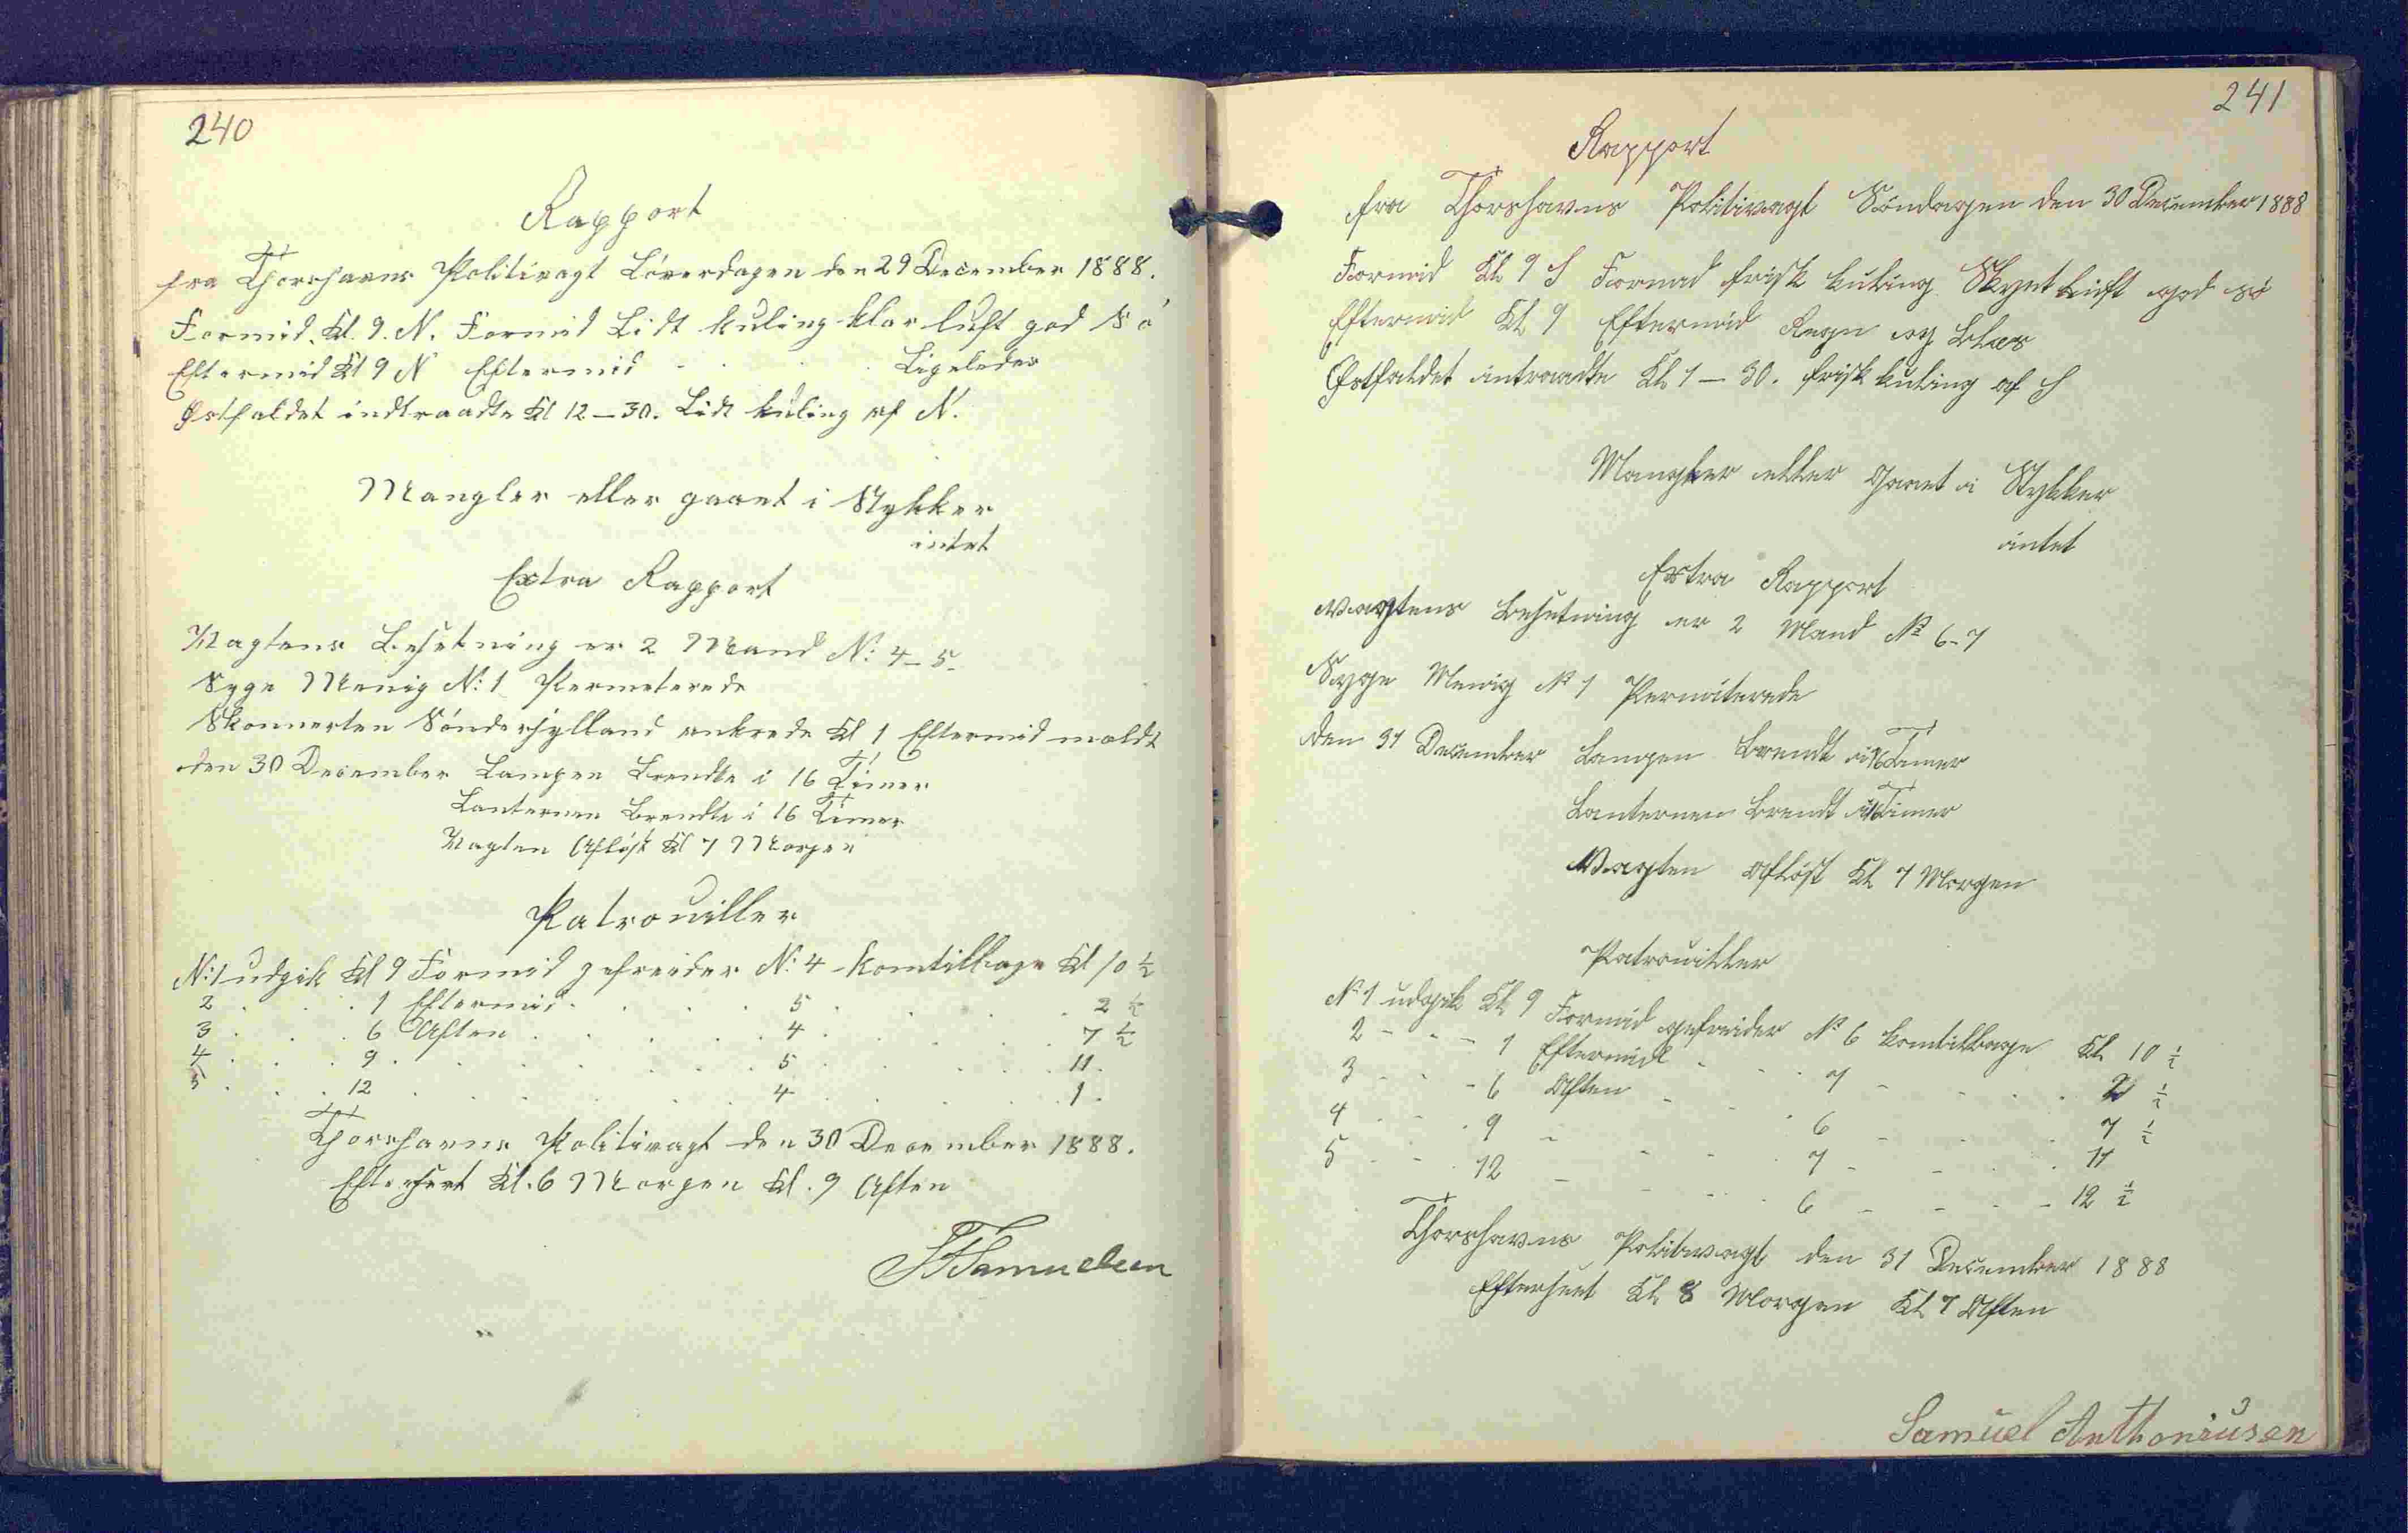 240
Rapport
fra Thorshavns Politivagt Löverdagen den 29 December 1888.
Formid. Kl. 9. N. Formid Lidt kuling klar luft god Sö
Eftermid Kl 9 N Eftermid . . . . Ligeledes
Østfaldet indtraadte Kl 12-30. Lidt kuling af N.
Mangler eller gaaet i Stykker
intet
Extra Rapport
Vagtens Besetning er 2 Mand N: 4-5-
Syge Menig N: 1 Permeterede
Skonnerten Sönderjylland ankrede Kl 1 Eftermid maldt
den 30 December Lampen Brendte i 16 Timer
Lanternen Brendte i 16 Timer
Vagten Afløst Kl 7 Morgen
Patrouiller
N: 1 udgik Kl 9 Formid gefreider N: 4 - komtilbage Kl 10 ½
2 . . . 1 Eftermid . . . 5 . . . . 2 ½
3 . . . 6 Aften . . . . 4 . . . . 7 ½
4 . . . 9 . . . . . . 5 . . . . 11.
5 . . . 12 . . . . . . 4 . . . . 1.
Thorshavns Politivagt den 30 December 1888.
Efterseet Kl. 6 Morgen Kl. 9 Aften
Samuelsen
241
Rapport
fra Thorshavns Politivagt Söndagen den 30 December 1888
Formid Kl 9 S Formad frisk kuling Skyet luft god sö
Eftermid Kl 9 Eftermid Regn og Blæs
Østfaldet intraadte Kl 1-30. frisk kuling af S
Mangler eller Gaaet i Stykker
intet
Extra Rapport
Vagtens Besetning er 2 Mand No 6-7
Syge Menig No 1 Permiterede
den 31 December Lampen Brendt i 16 Timer
Lanternen Brendt i 16 Timer
Vagten afløst Kl 7 Morgen
Patrouiller
No 1 udgik Kl 9 Formid gefreider No 6 komtilbage Kl 10 ½
2 - - - 1 Eftermid - - - 7 - - - - 2 ½
3 - - - 6 Aften - - - 6 - - - - 7 ½
4 - - - 9 - - - - 7 - - - - 11
5 - - - 12 - - - - 6 - - - - 12 ½
Thorshavns Politivagt den 31 December 1888
Efterseet Kl 8 Morgen Kl 7 Aften
Samuel Anthoniusen